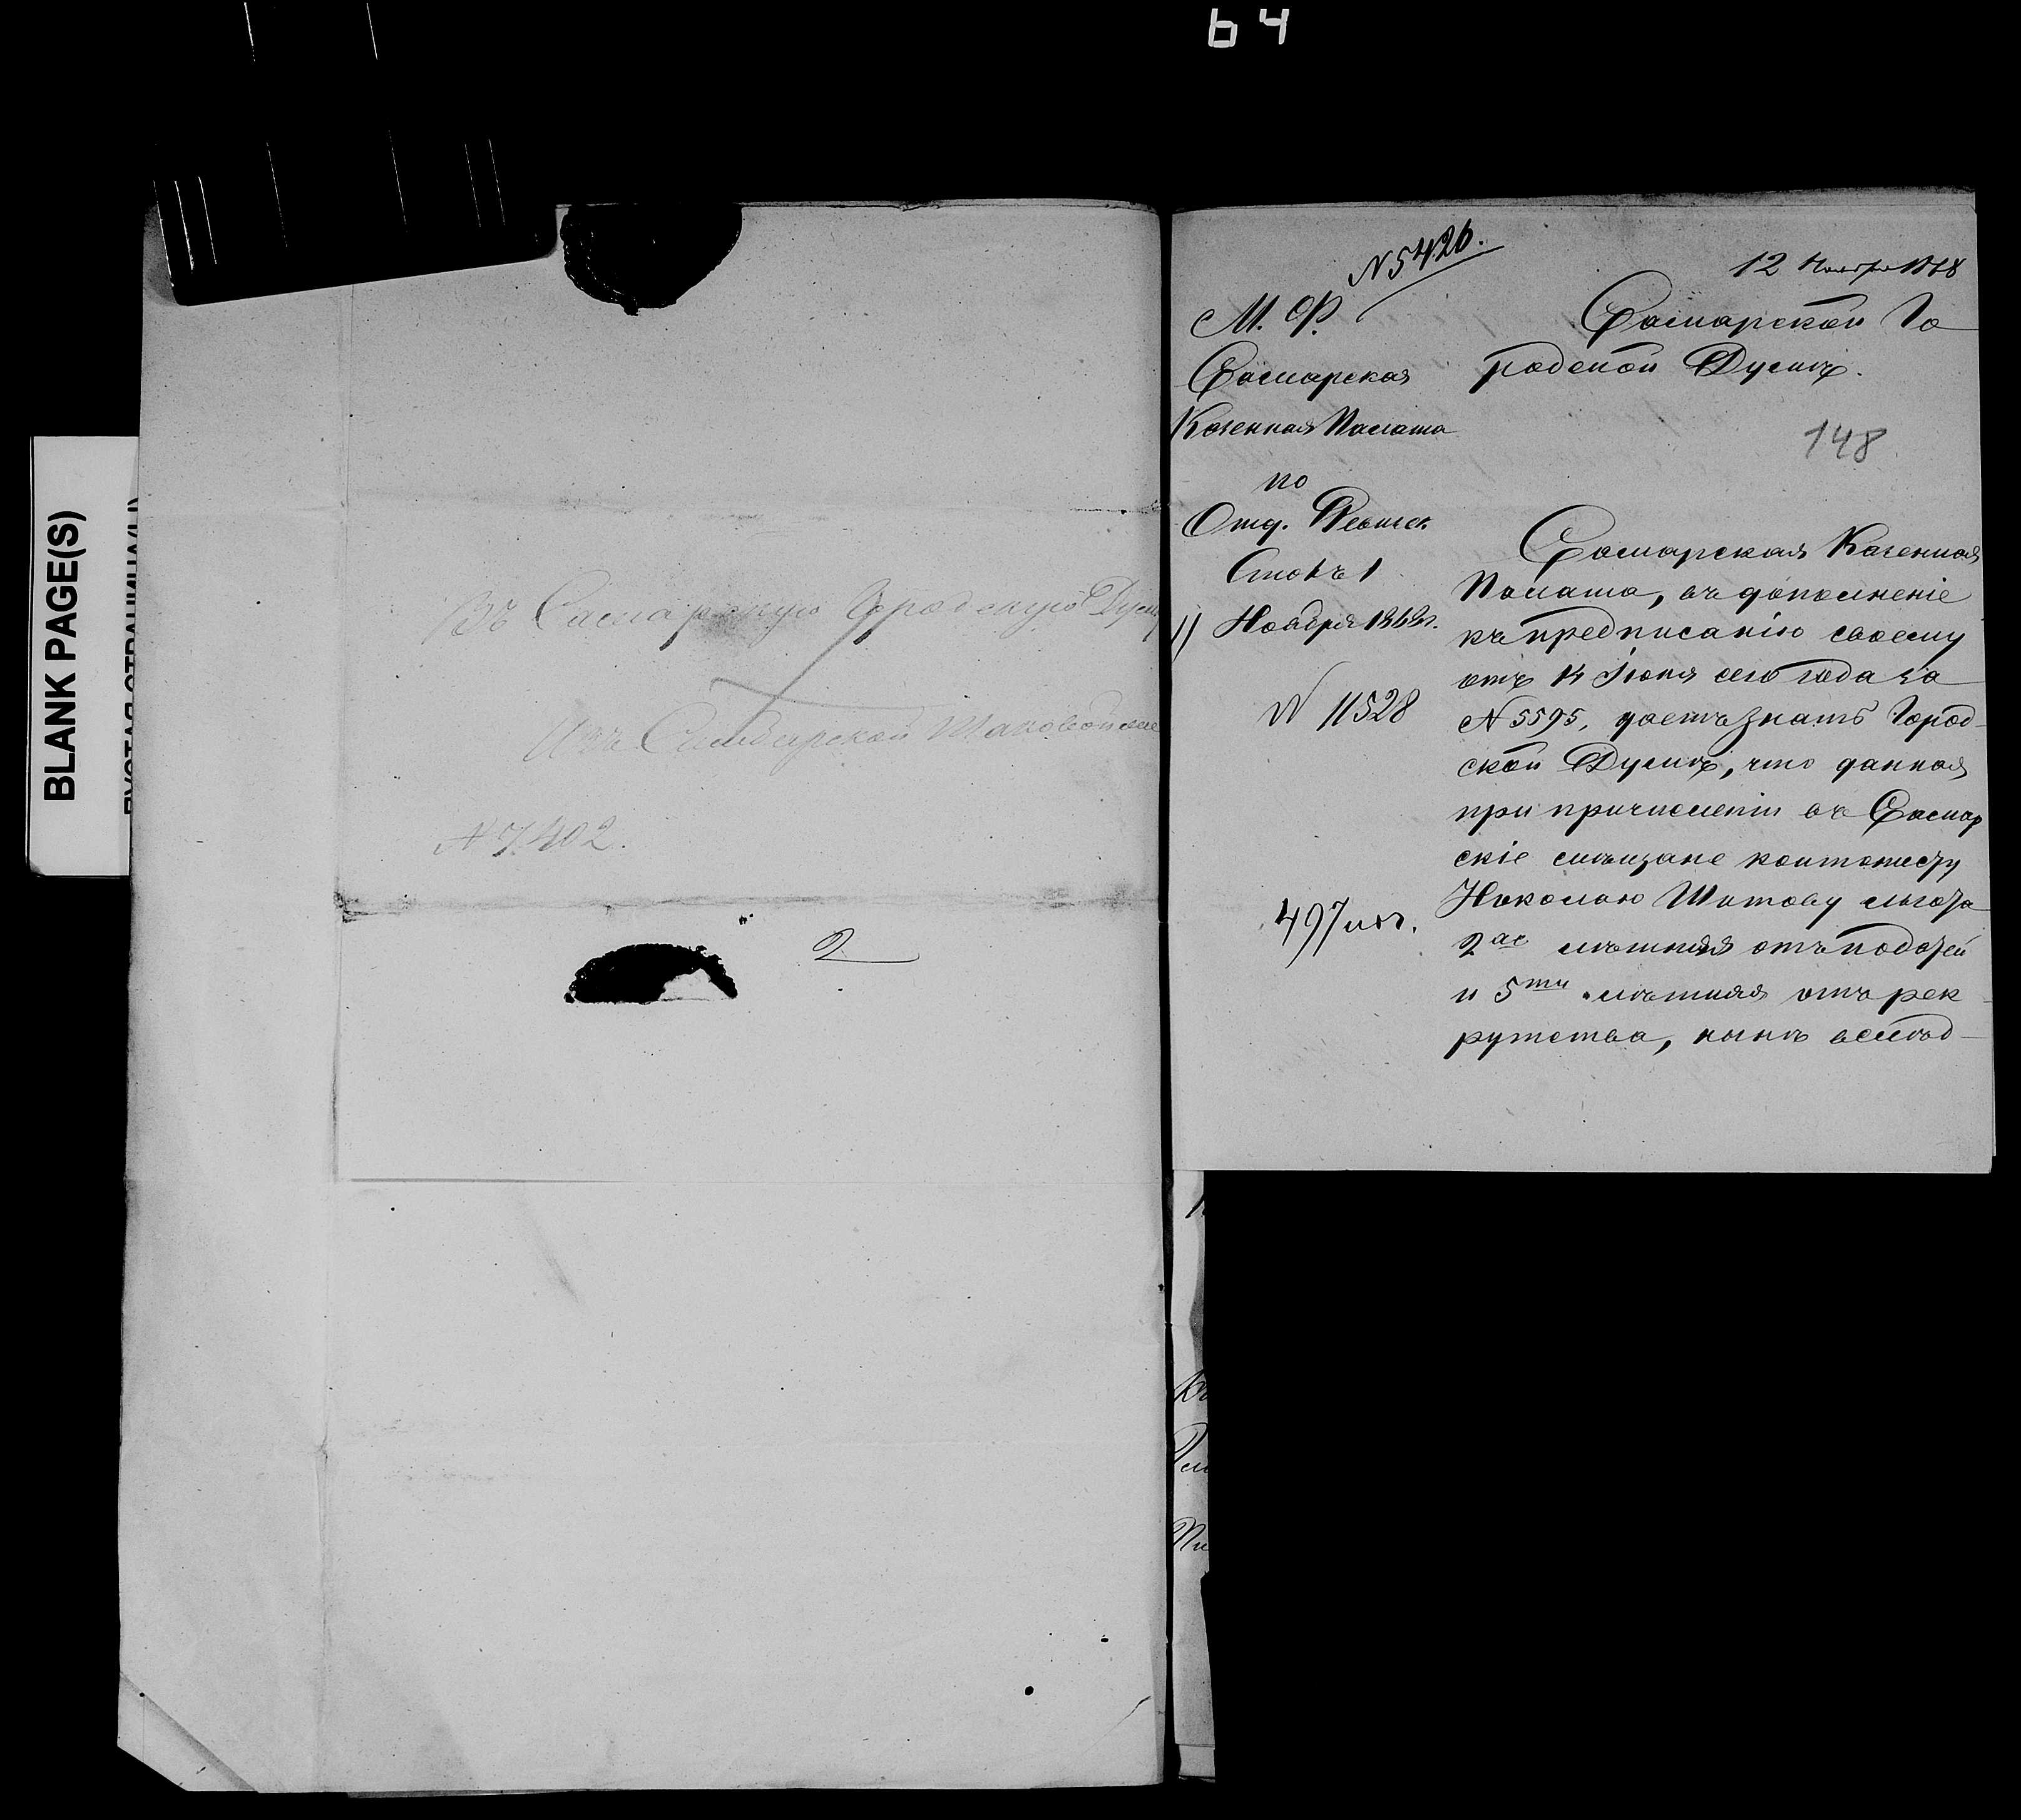 64
BLANK PAGE(S)
Въ Самарскую Городскую Думу
Изъ Симбирской Таковой же
№ 7402.
2
№ 5426.
12 Ноября 1868
М. Ф.
Самарская
Казенная Палата
по
Отд. Ревизск.
Столъ 1
11 Ноября 1868 г.
№ 11528
497
Самарской Го
родской Думѣ.
148
Самарская Казенная
Палата, въ дополненіе
къ предписанію своему
отъ 14 Іюня сего года за
№ 5595, даетъ знать Город-
ской Думѣ, что данная
при причисленіи въ Самар
скіе мѣщане кантонисту
Николаю Шитову льгота
2ае лѣтняя отъ податей
и 5ти лѣтняя отъ рек-
рутства, нынѣ вслѣд-